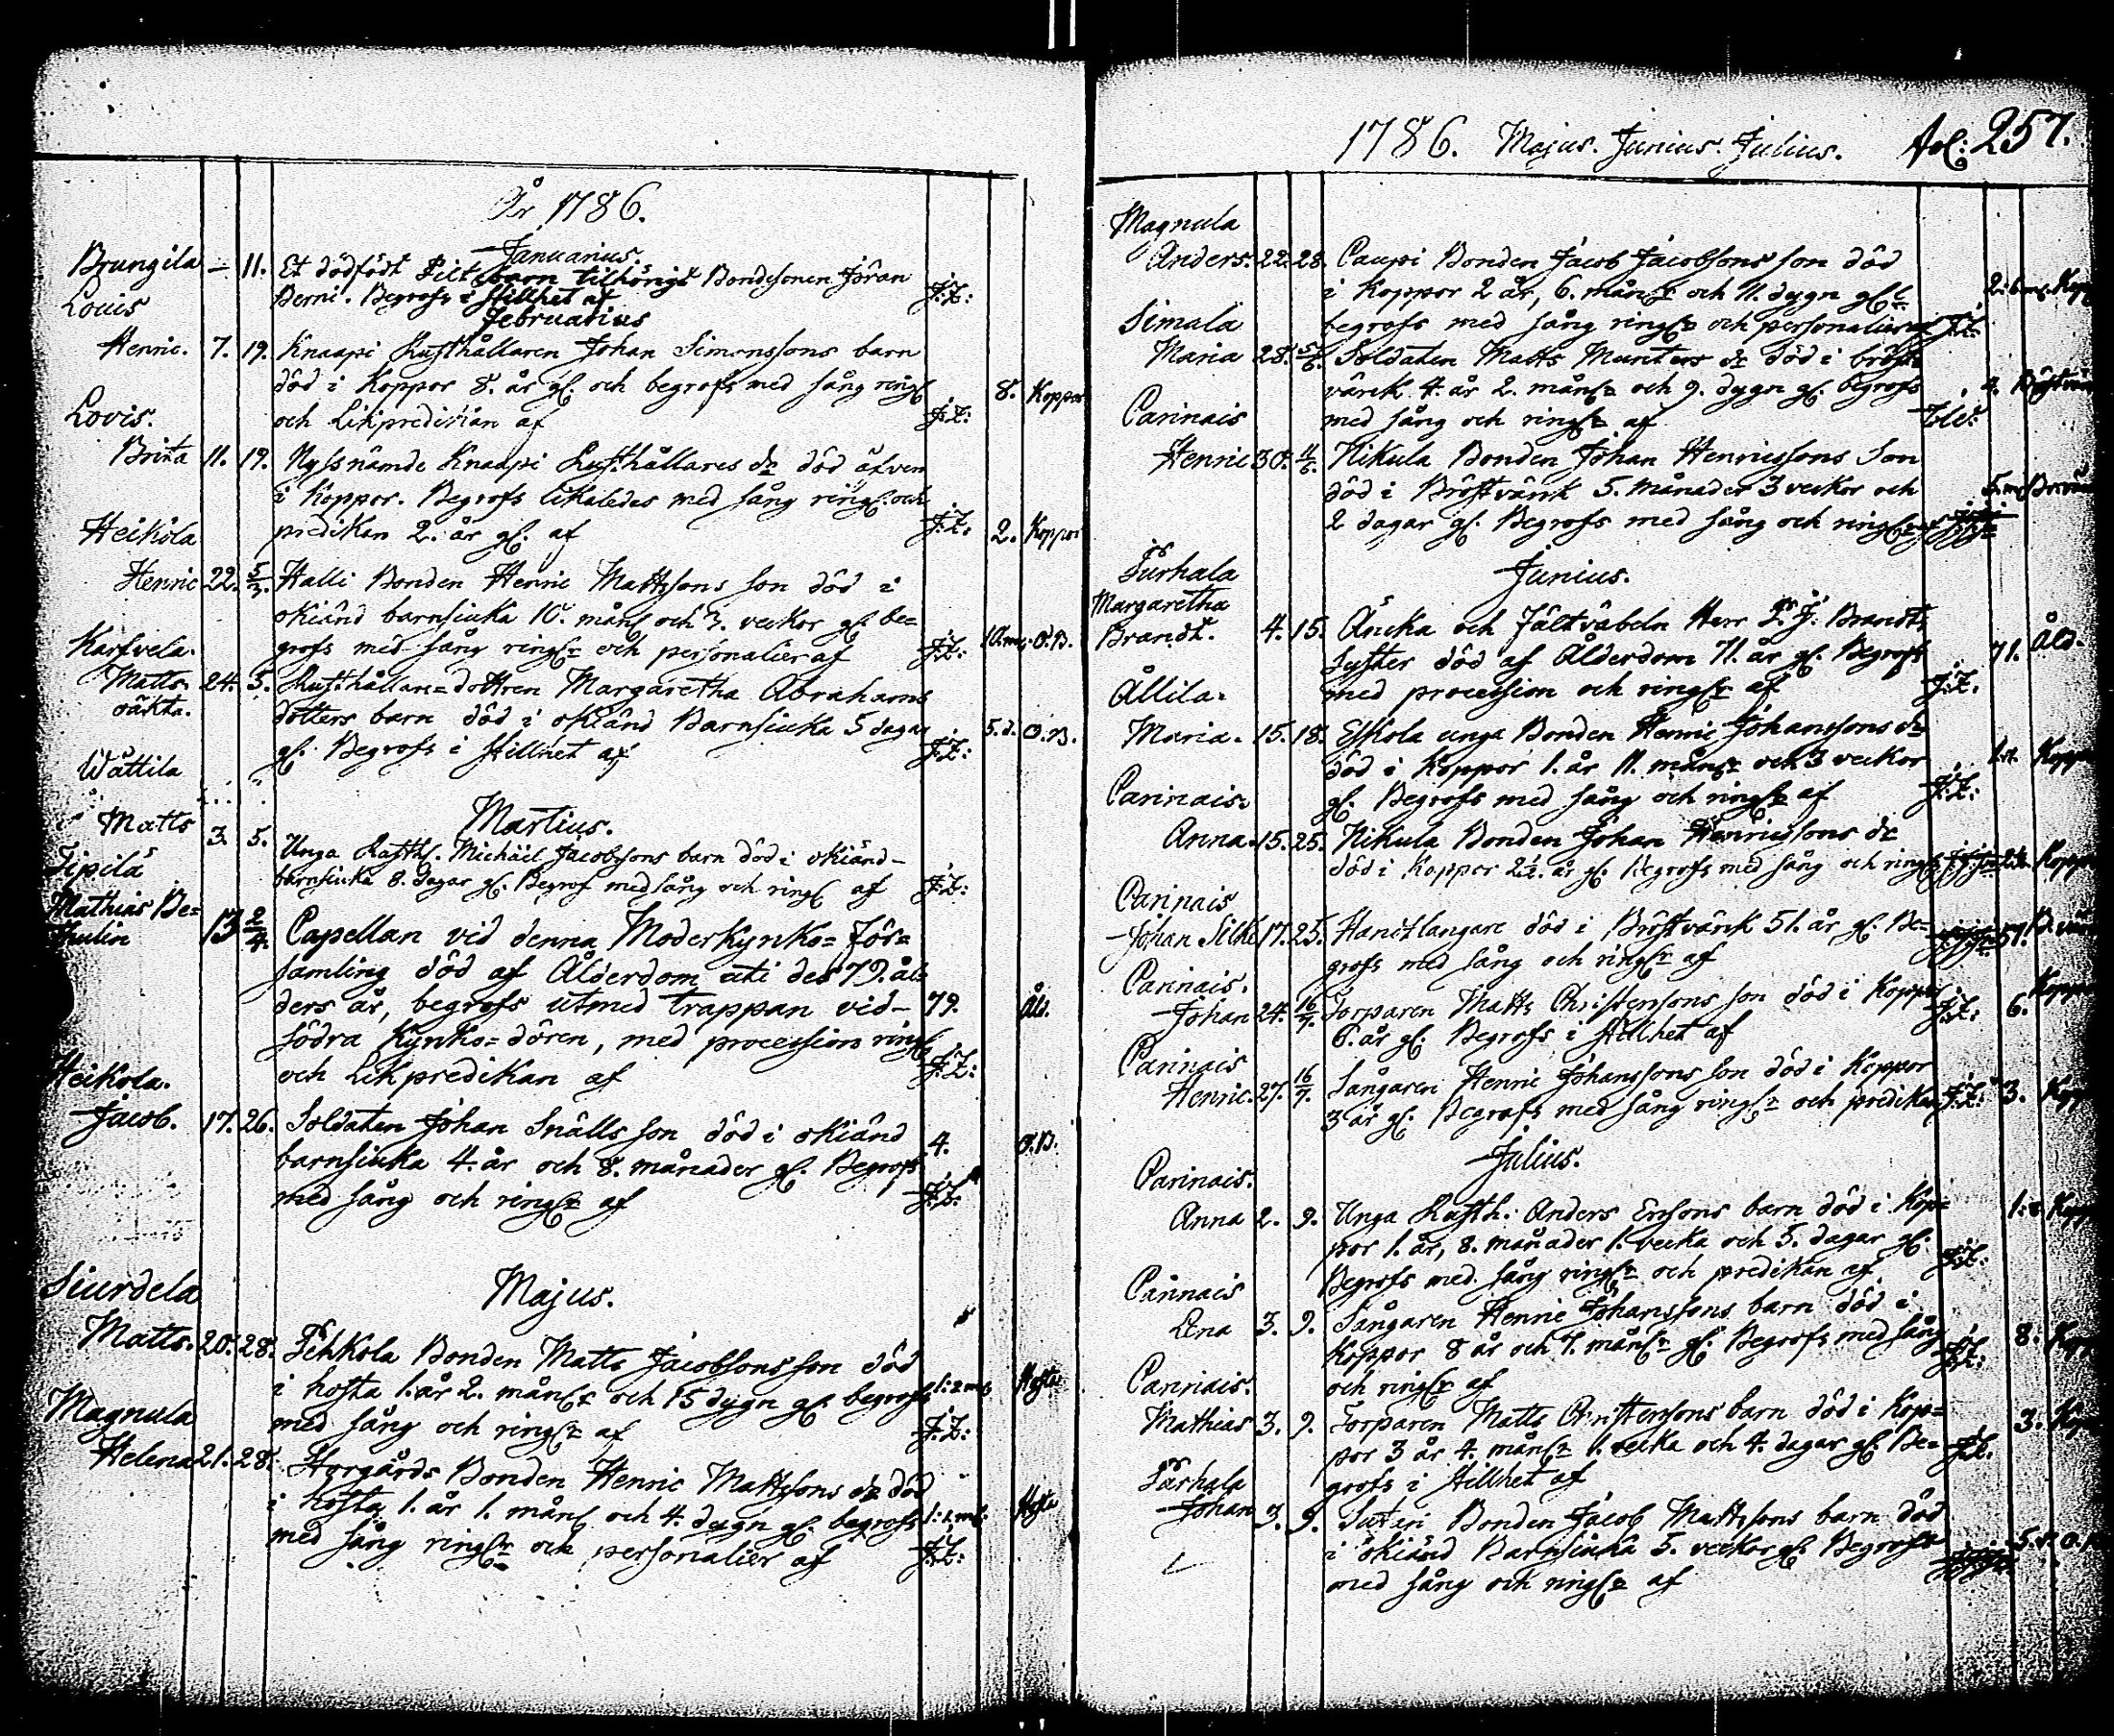 År 1786.
Januarius.
Brungila – 11. Et dödfödt Pilt barn tilhörigt Bondesonen Jöran
Louis Berni. Begrofs i stillhet af J:Z:
Februarius
Henric. 7. 19. Knaapi Rusthållaren Johan Simonssons barn
död i Koppor 8. år gl. och begrofs med sång ringn 8. Koppor
Lovis. och Likpredikan af J:Z:
Brita 11. 19. Nyssnämde Knaapi Rusthållares dr död äfven
i Koppor. Begrofs likaledes med sång ringn. och
Heikola predikan 2. år gl. af J:Z. 2. Koppor
Henric 22. 5/3. Halli Bonden Henric Mattssons son död i
okiänd barnsiuka 10. mån och 3. veckor gl. be=
Karfvela. grofs med sång ringnr och personalier af J:Z: 10 m. O.B.
Matts 24. 5. Rusthållare=dottren Margaretha Abrahams
oäkta. dotters barn död i okiänd Barnsiuka 5 dagar 5.d. O.B.
gl. Begrofs i stillhet af J:Z:
Wåttila
Martius.
Matts 3. 5. Unga Rusth. Michäel Jacobssons barn död i okiänd–
Sipilä barnsiuka 8. dagar gl. Begrof med sång och ringn af J:Z:
Mathias Be=
thulin 13 2/4. Capellan vid denna Moderkyrko=För=
samling död af Ålderdom uti des 79. ål=
ders år, begrofs utmed trappan vid– 79. Åld.
södra Kyrko=dören, med procession ringn
Heikola. och Likpredikan af J:Z:
Jacob. 17. 26. Soldaten Johan Snälls son död i okiänd 4. O.B.
barnsiuka 4. år och 8. månader gl. Begrofs
med sång och ringnr af J:Z:
Siurdela
Majus.
Matts. 20. 28. Pehkola Bonden Matts Jacobssons son död
i hosta 1. år 2. månr och 15 dygn gl. begrofs 1: 2 m. Hosta
Magnula med sång och ringnr af J:Z:
Helena 21. 28. Storgårds Bonden Henric Mattssons dr död
i hosta 1. år 1. mån och 4. dygn gl. begrofs 1: 1 m: Hosta
med sång ringnr och personalier af J:Z:
1786. Majus. Junius. Julius. Fol: 257.
Magnula
Anders. 22. 28. Caupi Bonden Jacob Jacobssons son död
i Koppor 2 år, 6. månr och 11. dygn gl. 2: 6 m. Kopp
Simala begrofs med sång ringnr och personalier af J:Z:
Maria 28. 5/6. Soldaten Matts Munters dr död i bröst
värck 4. år 2. månr och 9. dygn gl. begrofs 4. Bröstvär
Carinais med sång och ringnr af
Henric 30. 11/6. Nikula Bonden Johan Henricssons Son
död i Bröstvärck 5. månader 3 veckor och 5. m
2 dagar gl. Begrofs med sång och ringnr af
Junius.
Margaretha
Brandt. 4. 15. Änckа och Fältväbeln Herr Brandts
syster död af Ålderdom 71. år gl. Begrofs 71. Åld.
Ållila. med procession och ringnr af J:Z.
Maria. 15. 18. Eskola unga Bonden Henric Johanssons dr
död i Koppor 1. år 11. månr och 3 veckor Koppor
Carinais. gl. Begrofs med sång och ringnr af J:Z:
Anna. 15. 25. Nikula Bonden Johan Henricssons dr
död i Koppor 2½. år gl. Begrofs med sång och ringn Koppor
Carinais
Johan Silke 17. 25. Handtlangare död i Bröstvärck 51. år gl. Be= 51. B.vär
grofs med sång och ringnr af
Carinais.
Johan 24. 16/7. Torparen Matts Christersons son död i Koppor J:Z: 6. Koppor
6. år gl. Begrofs i stillhet af
Carinais
Henric. 27. 16/7. Sångaren Henric Johanssons son död i Koppor
3 år gl. Begrofs med sång ringnr och predikan J:Z: 3. Kopp
Julius.
Carinais.
Anna 2. 9. Unga Rusth: Anders Ersons barn död i Kop= 1: 8 Kopp
por 1. år, 8. månader 1. vecka och 5. dagar gl.
Begrofs med sång ringnr och predikan af J:Z:
Carinais
Lena 3. 9. Sångaren Henric Johanssons barn död i
Koppor 8 år och 7. månr gl. Begrofs med sång J:Z: 8. Kopp
Carinais. och ringnr af
Mathias 3. 9. Torparen Matts Christersons barn död i Kop= 3. Kop
por 3 år 4. månr 1. vecka och 4. dagar gl. Be= J:Z.
grofs i stillhet af
Johan 3. 9. Suteri Bonden Jacob Mattssons barn död
i okiänd Barnsiuka 5. veckor gl. Begrofs 5. v. O.B
med sång och ringnr af